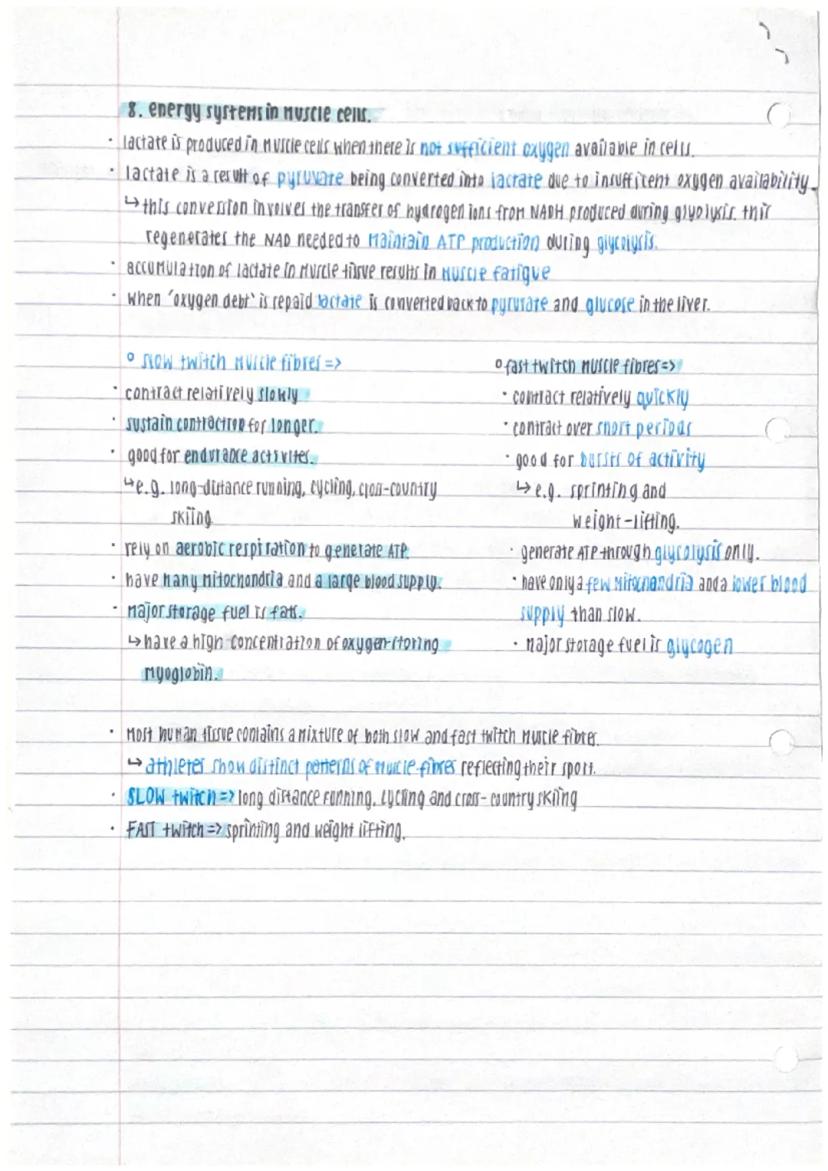 8. energy systems in muscle cells.
· lactate is produced in muscle cells when there is not sufficient oxygen available in cells.
· lactate is a result of pyruvate being converted into lacrate due to insufficent oxygen availability.
↳ this conversion involves the transfer of hydrogen ions from NADH produced during glyolysis. this
regenerates the NAD needed to maintain ATP production during glycolysis.
· accumulation of lactate in muscle tissue results in muscle fatigue
· when 'oxygen debt' is repaid lactate is converted back to pyruvate and glucose in the liver.
° slow twitch muscle fibres =>
· contract relatively slowly
· sustain contraction for longer.
· good for endurance activites.
↳ e.g. long-distance running, cycling, cross-country
skiing
· rely on aerobic respiration to generate ATP.
· have many mitochondria and a large blood supply.
· major storage fuel is fats.
↳ have a high concentration of oxygen-storing
myoglobin.
° fast twitch muscle fibres =>
· contract relatively quickly
· contract over short periods
· good for bursts of activity
↳ e.g. sprinting and
weight-lifting.
· generate ATP through glycolysis only.
· have only a few mitochandria and a lower blood
supply than slow.
· major storage fuel is glycogen
· most human tissue contains a mixture of both slow and fast twitch muscle fibres.
↳ athletes show distinct patterns of muscle fibres reflecting their sport.
· SLOW twitch => long distance running, cycling and cross-country skiing
· FAST twitch => sprinting and weight lifting.